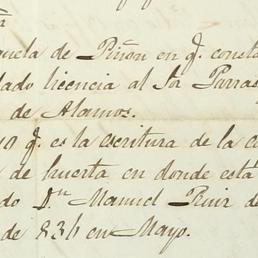 quela de Piñon en q.e consta
dado licencia al Sor Parra
de Alamos.
10 q.e es la escritura de la c
de huerta en donde está
do D.n Manuel Ruiz de
de 836 en Mayo.